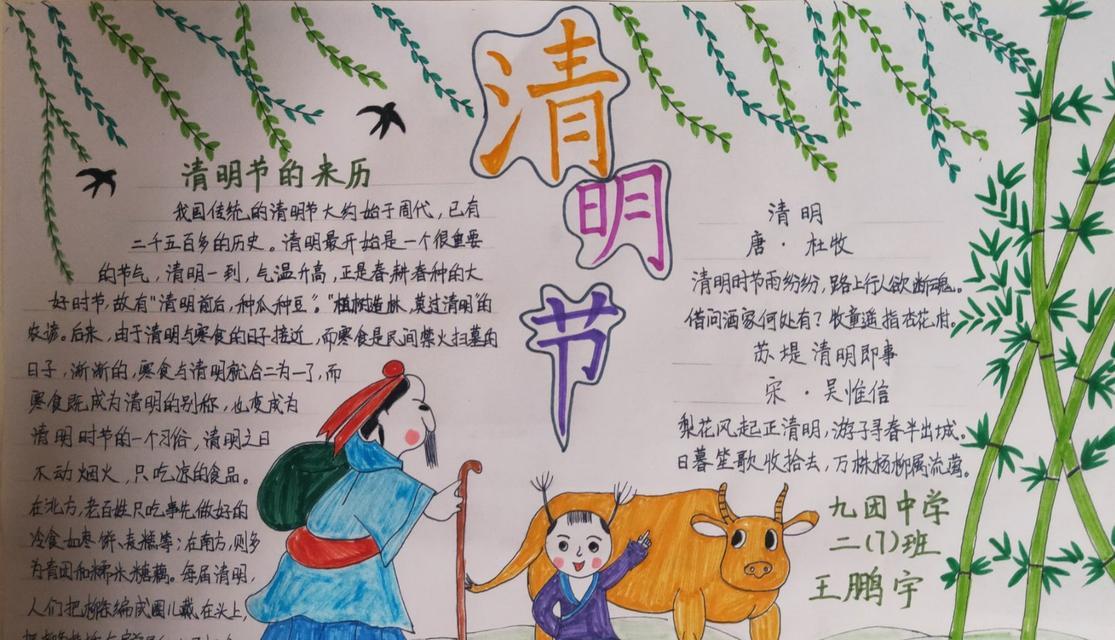 清明节
清明节的来历
我国传统的清明节大约始于周代，已有
二千五百多的历史。清明最开始是一个很重要
的节气，清明一到，气温升高，正是春耕春种的大
好时节，故有“清明前后，种瓜种豆”。“植树造林，莫过清明”的
农谚。后来，由于清明与寒食的日子接近，而寒食是民间禁火扫墓的
日子，渐渐的，寒食与清明就合二为一了，而
寒食既成为清明的别称，也变成为
清明时节的一个习俗，清明之日
不动烟火，只吃凉的食品。
在北方，老百姓只吃事先做好的
冷食如枣饼、麦糕等；在南方，则多
为青团和糯米糖藕。每届清明，
人们把柳条编成圈儿戴在头上，
清明
唐·杜牧
清明时节雨纷纷，路上行人欲断魂。
借问酒家何处有？牧童遥指杏花村。
苏堤清明即事
宋·吴惟信
梨花风起正清明，游子寻春半出城。
日暮笙歌收拾去，万株杨柳属流莺。
九团中学
二(7)班
王鹏宇